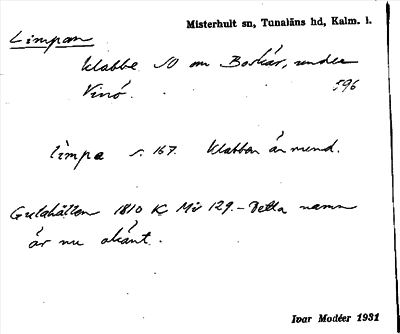 Misterhult sn, Tunaläns hd, Kalm. l.
Limpan
Klabbe SO om Boskär, under
Vinö. 596
limpa s. 167. Klabben är mend.
Guldhällen 1810 K Mir 129. - Detta namn
är nu okänt.
Ivar Modéer 1931